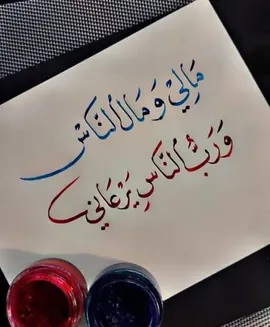 مَالِي وَمَالُ النَّاسْ
وَرَبُّ النَّاسِ يَرْعَانِي